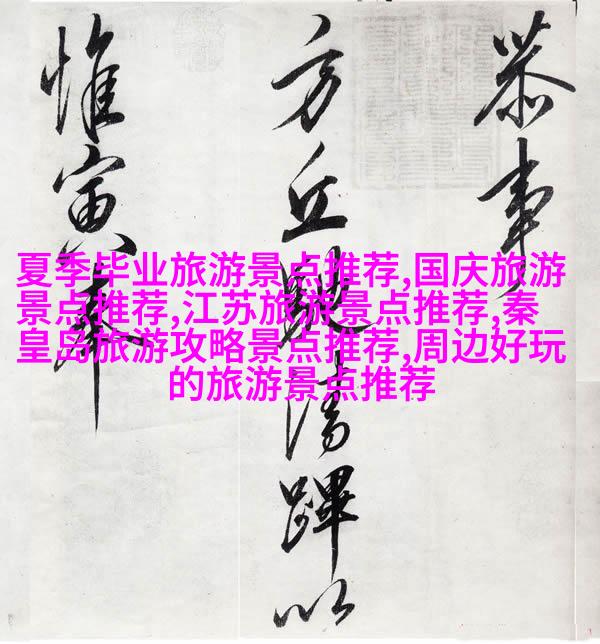 恭事
方丘馳清蹕以
惟寅奉
夏季毕业旅游景点推荐,国庆旅游
景点推荐,江苏旅游景点推荐,秦
皇岛旅游攻略景点推荐,周边好玩
的旅游景点推荐